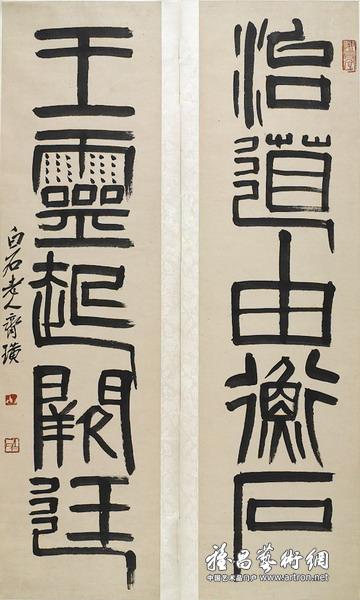 治道由衡石
王靈起闕廷
白石老人齊璜
雅昌藝術網
中国艺术品门户 www.artron.net